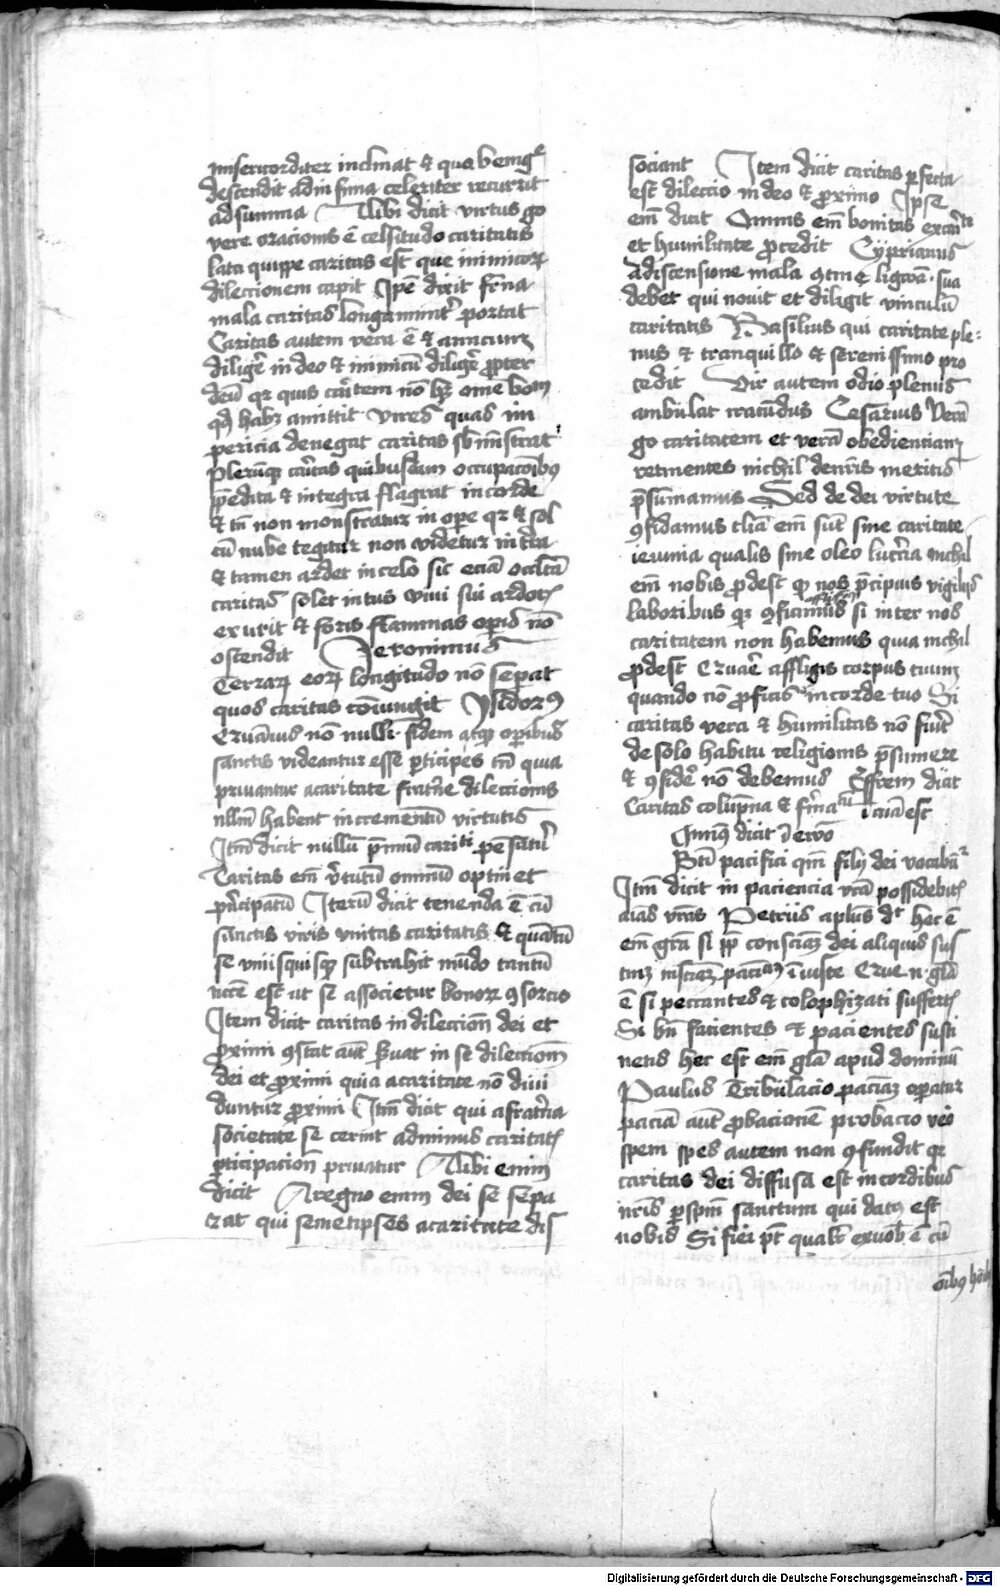 misericorditer inclinat & qua benigᵉ
descendit ad infima celeriter recurrit
ad summa Alibi dicit virtus go
vere oracionis ē celsitudo caritatis
lata quippe caritas est que inimicoꝝ
dileccionem capit Ipē dixit frna
mala caritas longaminit portat
Caritas autem vera ē & amicum
diligē in deo & inimicū diligē ꝓpter
deū qꝛ quis caritem nō hꝫ om̄e bonum
qd habꝫ amittit vires quas im
pericia denegat caritas sbministrat
Plerūqꝫ caritas quibusdam occupacōibꝰ
īpedita & integra flagrat in corde
& tn̄ non monstratur in ope qꝛ & sol
cū nube tegitur non videtur in tͤra
& tamen ardet in celo sic eciā occltā
caritas solet intus vim sui ardoris
exurit & foris flammas opis nō
ostendit Jeronimus
Terraꝝ eoꝝ longitudo nō sepat
quos caritas coniungit Ysidorꝰ
Quāvis nō nulli fidem atqꝫ opibus
sanctis videantur esse pticipes tn̄ quia
privantur a caritate frat̄ne dileccionis
nllm̄ habent incrementū virtutis
Itm̄ dicit nullū p̄miū caritati pēsatur
Caritas em̄ virtutū omniū optinet
p̄ncipatū Iterū dicit tenenda ē cū
sanctis viris vnitas caritatis & quātū
se vniusquisqꝫ subtrahit mūdo tantū
necē est ut se associetur bonoꝝ ꝯsorcio
Item dicit caritas in dileccion̄ dei et
ꝓximi ꝯstat aut s̄uat in se dileccionē
dei et ꝓximi quia a caritate nō diui
duntur ꝓximi Itm̄ dicit qui a frat̄na
societate se cernit adminus caritatis
pticipacion̄ privatur Alibi enim
dicit A regno enim dei se sepa
rat qui semetipses a caritate dis
sociant Item dicit caritas pfecta
est dileccio in deo & ꝓximo Ipse
em̄ dicit Omnis em̄ bonitas ex carite
et humilitate ꝓcedit Cyprianus
A discensione mala ꝯtine ligwā sua
debet qui novit et diligit vinculū
caritatis Basilius qui caritate ple⸗
nus & tranquillo & serenissimo pro
cedit Vir autem odio plenus
ambulat iracūdus Cesarius Verā
go caritatem et verā obedientiam
retinentes nichil de nr̄is meritis
p̄sumamus Sed de dei virtute
ꝯfidamus talia em̄ sūt sine caritate
ieiunia qualis sine oleo lucerna nichil
em̄ nobis ꝓdest qꝫ nos p̄cipuis vigiliis
laboribus qꝛ ꝯficimus si inter nos
caritatem non habemus quia nichil
ꝓdest Cruarē affligis corpus tuum
quando nō ꝓficis in corde tuo Si
caritas vera & humilitas nō fuīt
de solo habitu religionis p̄sumere
& ꝯfidē nō debemus Effrem dicit
Caritas colūpna & firmatū
Btī pacifici qm̄ filij dei vocabūr
Itm̄ dicit in paciencia vr̄a possidebitis
aīas vr̄as Petrus aplus dt hec ē
em̄ grā si ꝓp consciam dei aliquis sus
tinꝫ tristiciaꝫ paciens īiuste Que n glā
ē si peccantes & colophizati suffertis
Si bn̄ facientes & pacientes susti
netis hec est em̄ glā apud dominū
Paulus Tribulacio paciāꝫ opatur
paciā aut ꝓbacionē probacio vēo
spem spes autem non ꝯfundit qꝛ
caritas dei diffusa est in cordibus
nr̄is p spm̄ sanctum qui datꝰ est
nobis Si fiei pt quod ex vob̄ ē cū
oībꝰ hōīb
Digitalisierung gefördert durch die Deutsche Forschungsgemeinschaft - DFG